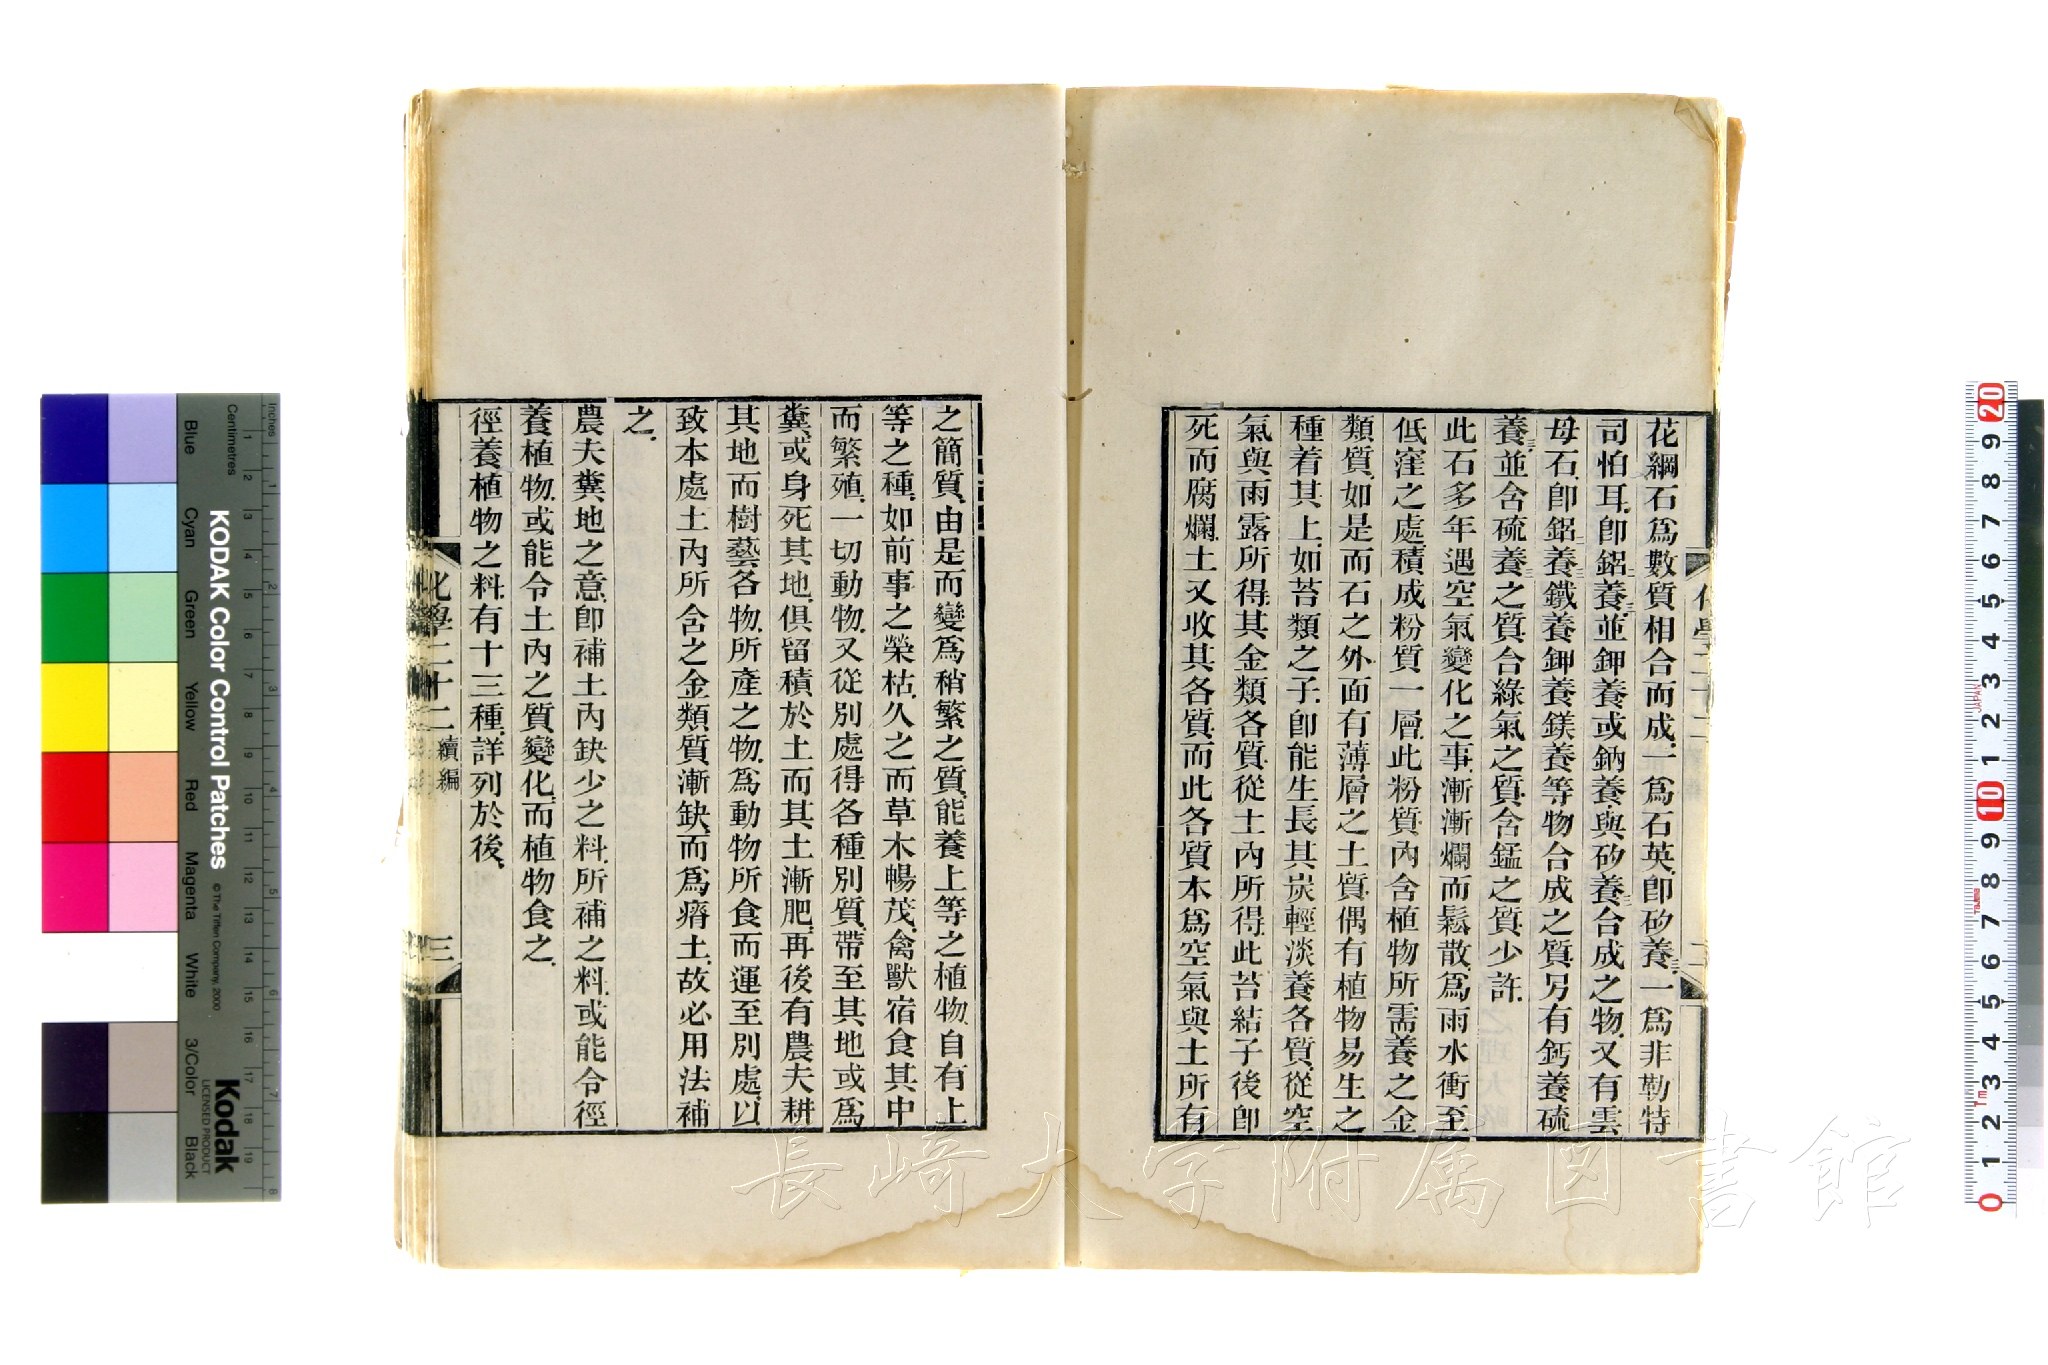 花綱石爲數質相合而成、一爲石英、卽矽養三、一爲非勒特
司怕耳、卽鋁二養三並鉀養或鈉養、與矽養三合成之物、又有雲
母石、卽鋁二養三鐵養鉀養鎂養等物合成之質、另有鈣養硫
養三、並含硫養之質、合綠氣之質、含錳之質、少許、
此石多年遇空氣變化之事、漸漸爛而鬆散、爲雨水衝至
低窪之處、積成粉質一層、此粉質內含植物所需養之金
類質、如是而石之外面有薄層之土質、偶有植物易生之
種着其上、如苔類之子、卽能生長、其炭輕淡養各質、從空
氣與雨露所得、其金類各質、從土內所得、此苔結子後卽
死而腐爛、土又收其各質、而此各質本爲空氣與土所有
之簡質、由是而變爲稍繁之質、能養上等之植物、自有上
等之種、如前事之榮枯、久之而草木暢茂、禽獸宿食其中
而繁殖、一切動物、又從別處得各種別質、帶至其地、或爲
糞、或身死其地、俱留積於土、而其土漸肥、再後有農夫耕
其地、而樹藝各物、所產之物、爲動物所食、而運至別處、以
致本處土內所含之金類質漸缺、而爲瘠土、故必用法補
之、
農夫糞地之意、卽補土內缺少之料、所補之料、或能令徑
養植物、或能令土內之質變化、而植物食之、
徑養植物之料、有十三種、詳列於後、
化學二十二 續編 三
KODAK Color Control Patches
© The Tiffen Company, 2000
Kodak
LICENSED PRODUCT
Inches
Centimetres
Blue Cyan Green Yellow Red Magenta White 3/Color Black
長崎大学附属図書館
JAPAN